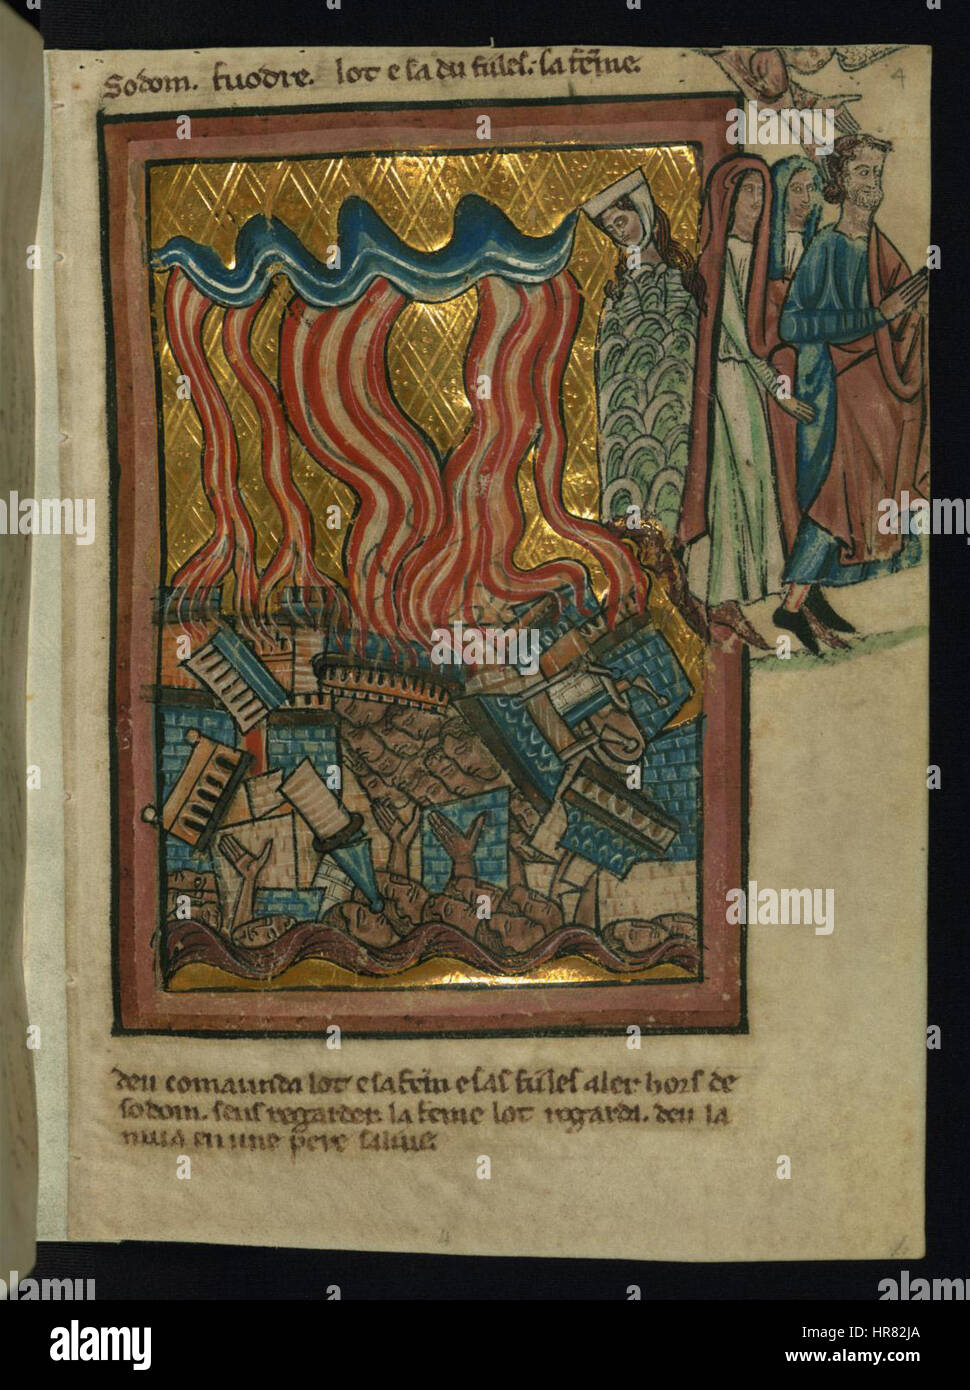 Sodom. fuodre. lot e sa du fules. sa feme.
4
deu comaunda lot e sa fem e sas fules aler hors de
sodom. seus regarder. la feme lot regarda. deu la
mua en une pere
alamy
Image ID: HR82JA
www.alamy.com